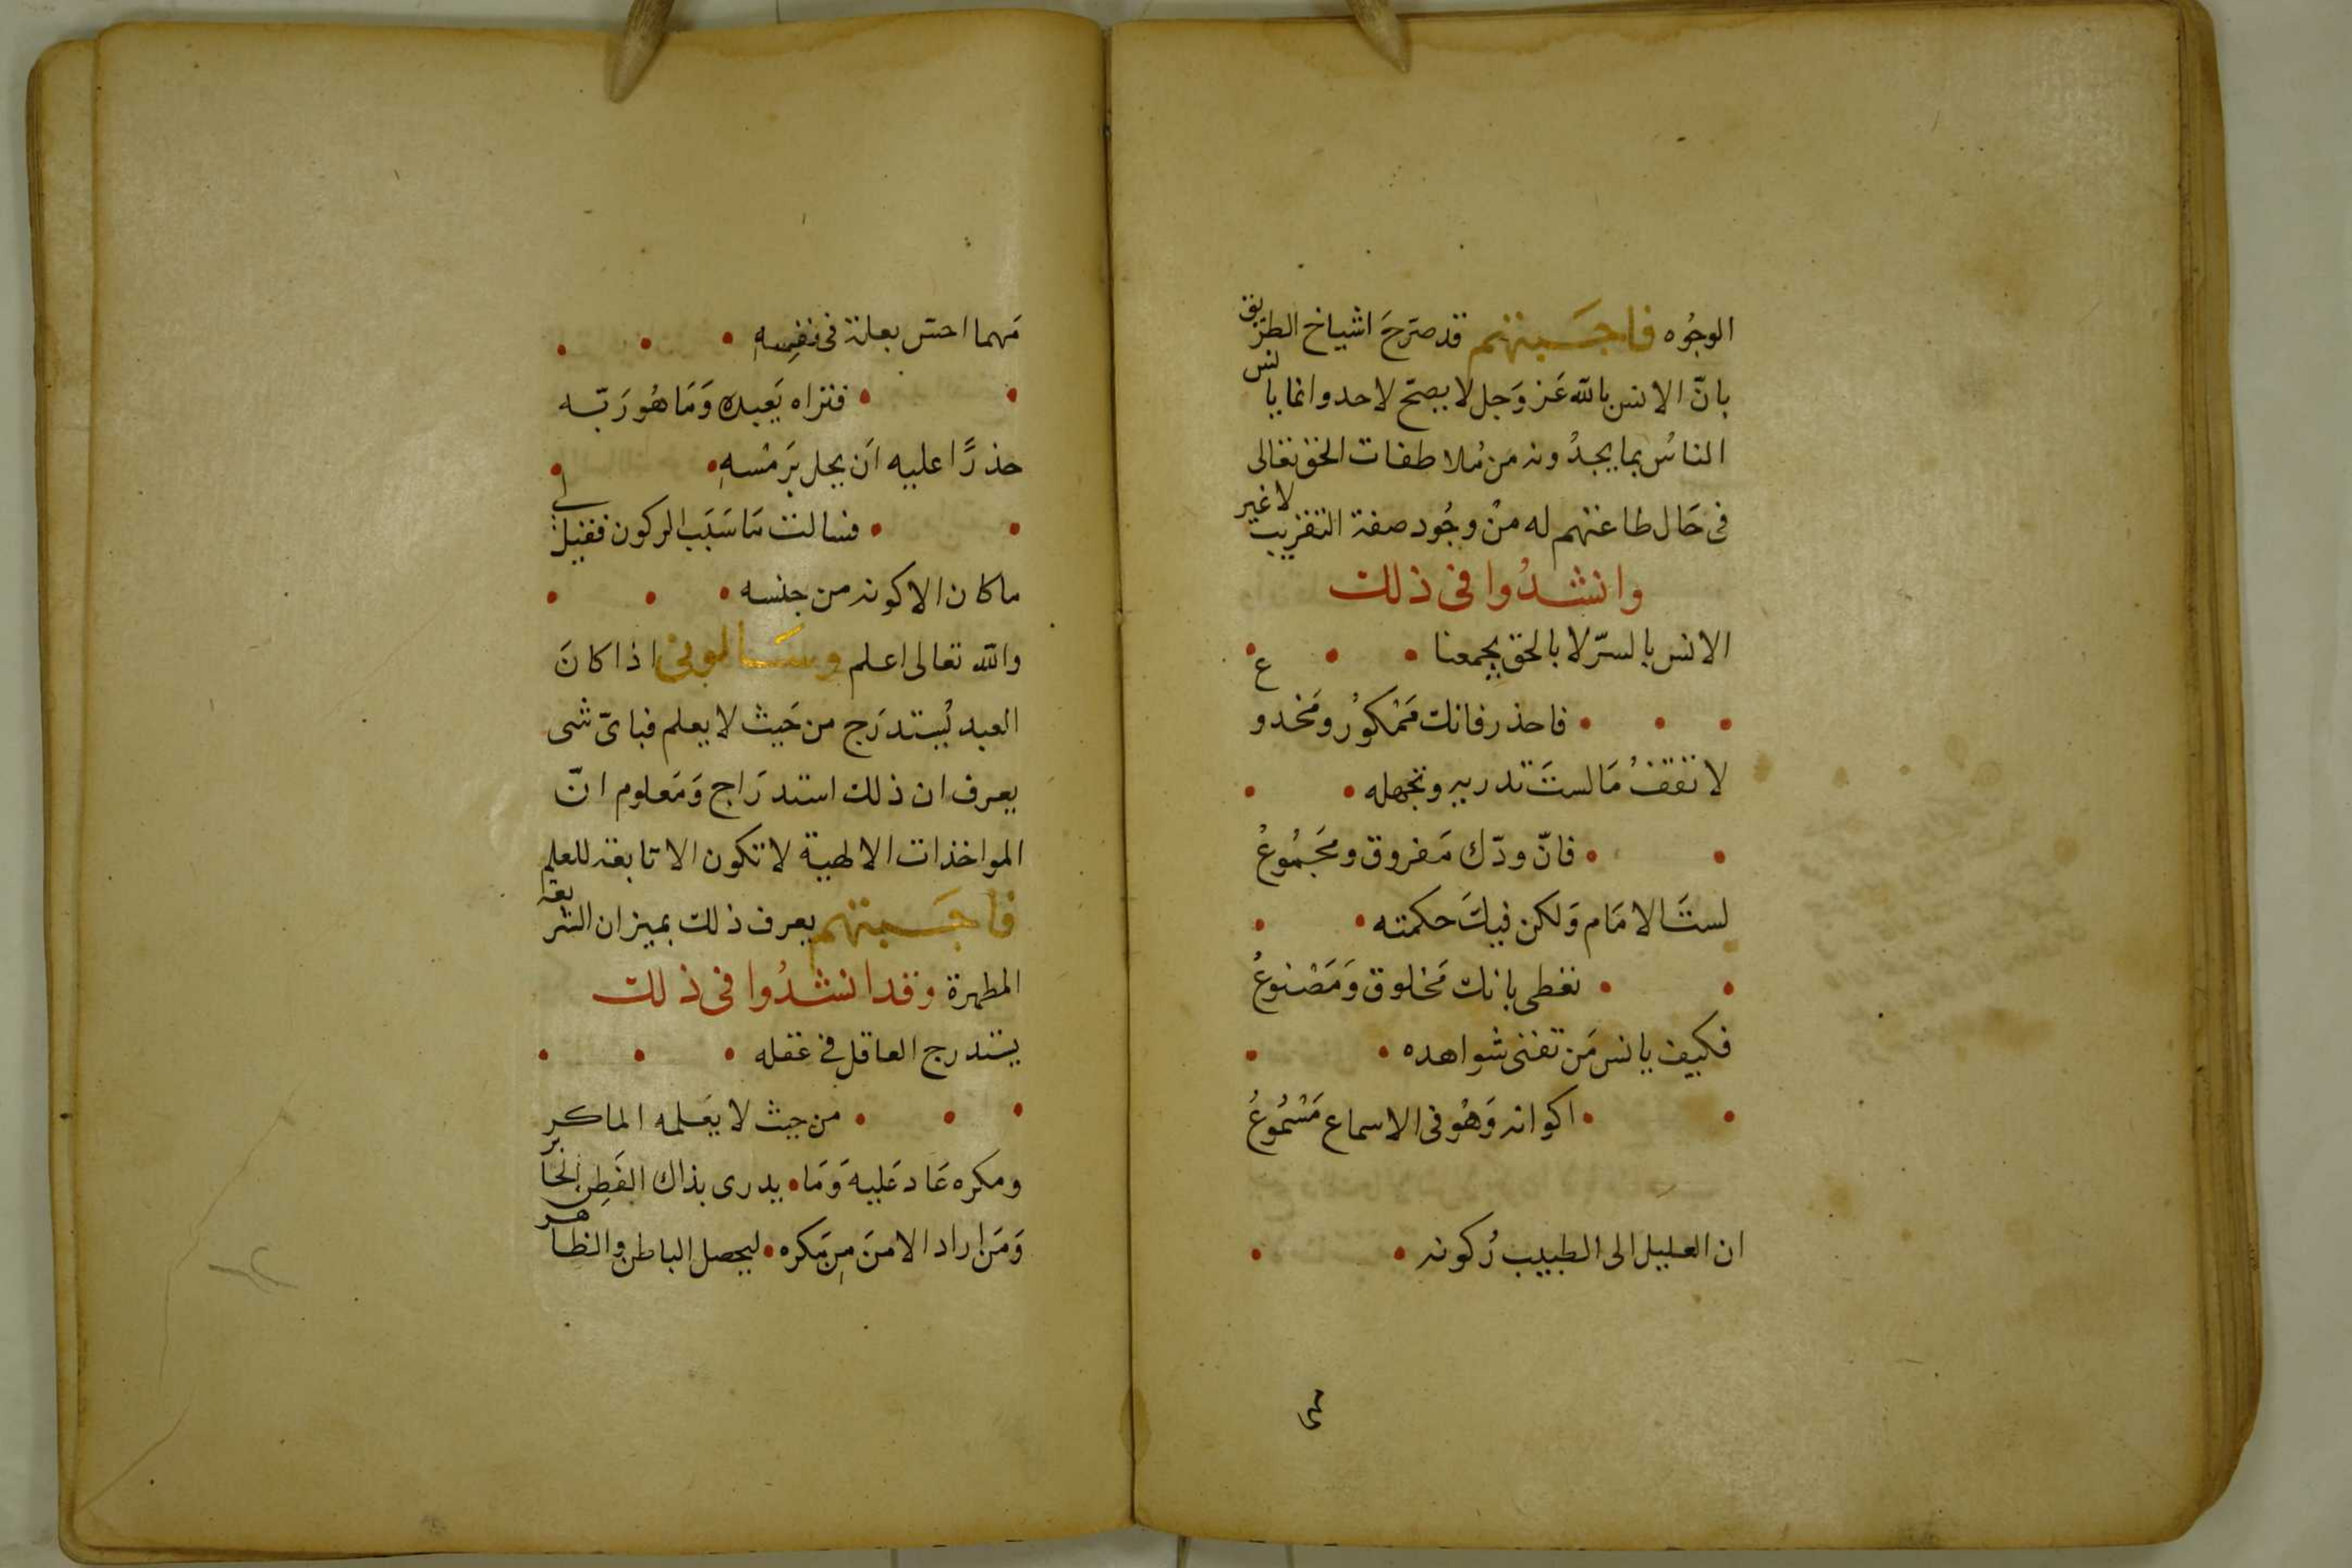 الوجُوه فاجَبتهم قد صَرحَ اشياخ الطريق
بانّ الانس بالله عَز وَجل لا يصحّ لاحد وانما يانس
الناسُ بما يجدُونه مَن مُلاطفات الحق تعالى
فى حَال طاعتهم له منْ وجُود صفة التقريب لا غير
وانشدُوا فى ذلك
الانس بالسرّ لا بالحق يجمعنا
فاحذر فانك مَمْكوُر ومَخدوع
لا تقفُ مَا لستَ تدريه وتجهله
فانّ ودّك مَفروق ومجَمُوعُ
لستَ الامَام وَلكن فيكَ حكمته
تغطى بانك مَخلوق وَمَصْنوعُ
فكيف يانس مَن تفنى شواهده
اكوانه وَهُو فى الاسماع مَسْمُوعُ
ان العليل الى الطبيب رُكونه
مَهما احسّ بعلة فى نفِسهِ
فتراه يَعبده وَمَا هُو رَبّه
حذرًا عليه اَن يحل برَمْسهِ
فسالت مَا سَبَب الركون فقيل لى
ما كان الا كونه من جنسه
والله تعالى اعلم وسَالونى اذا كانَ
العبد يُستدرَج من حَيث لا يعلم فباىّ شى
يعرف ان ذلك استدرَاج وَمَعلوم انّ
المواخذات الالهية لا تكون الا تابعة للعلم
فاجَبتهم يعرف ذلك بميزان الشريعة
المطهرة وقد انشدُوا فى ذلك
يستدرج العاقل فى عقله
من حيث لا يَعلمه الماكر
ومكره عَاد عَليه وَمَا يدرى بذاك الفَطِن الخابر
وَمَن اراد الامنَ مِن مَكره ليحصل الباطن والظاهر